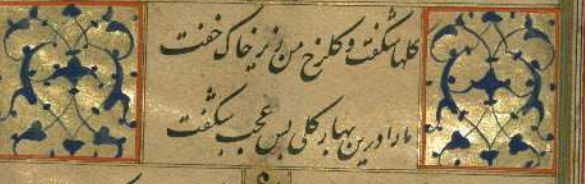 گلها شگفت و گلرخ من زیر خاک خفت
ما را درین بهار گلی بس عجب شگفت